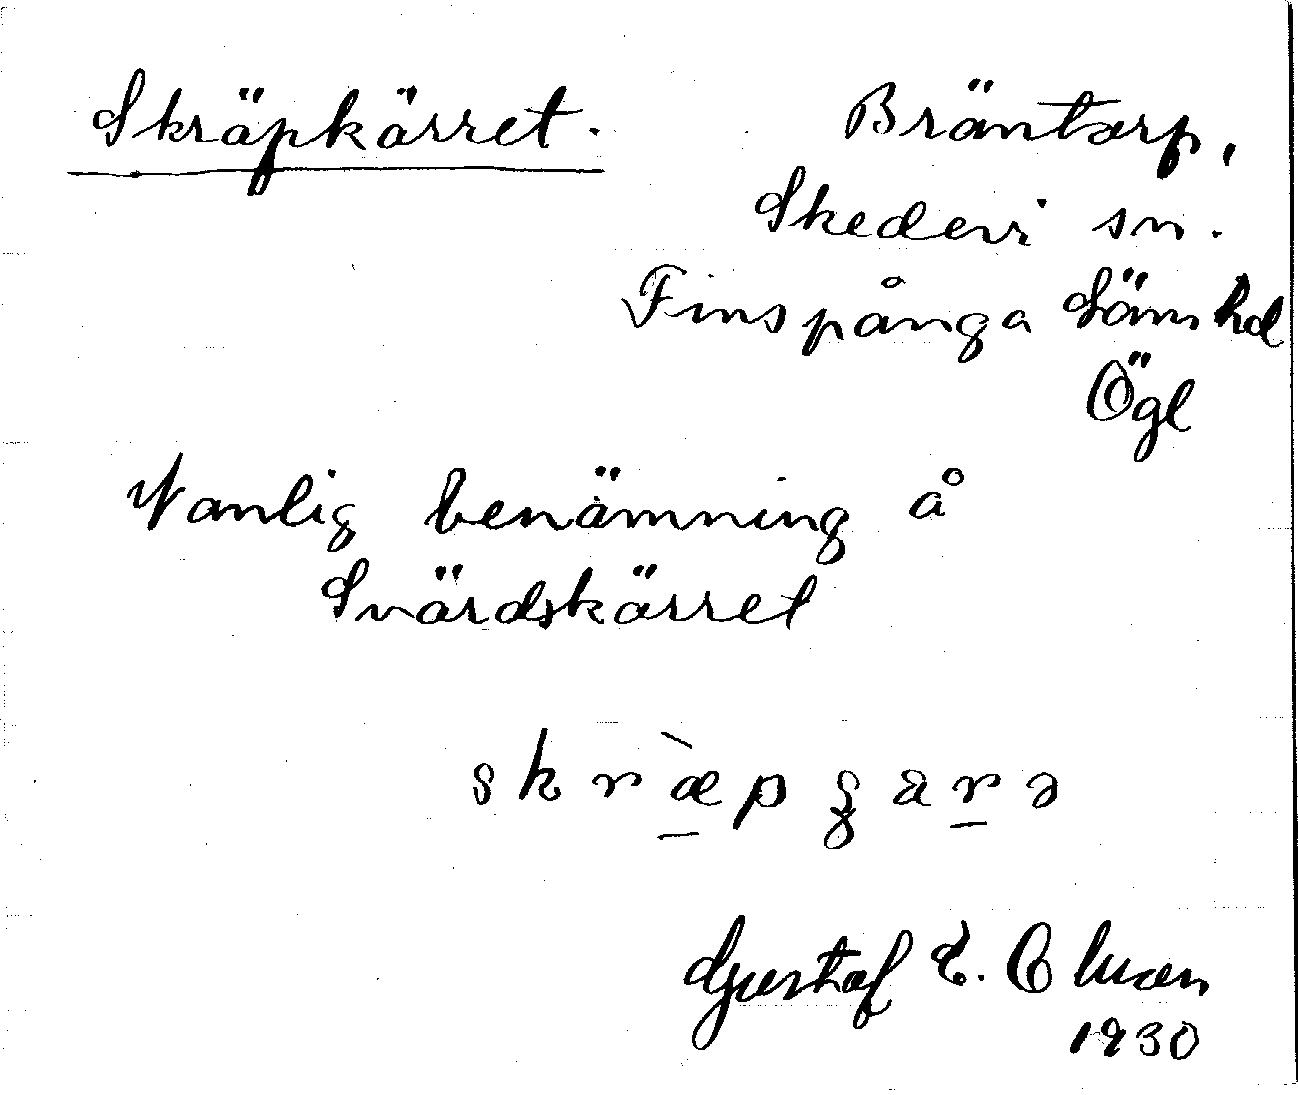 Skräpkärret.
Bräntorp,
Skedevi sn.
Finspånga Läns hd
Ögl
Vanlig benämning å
Svärdskärret
skræ̀pʒarə
Gustaf E.
1930